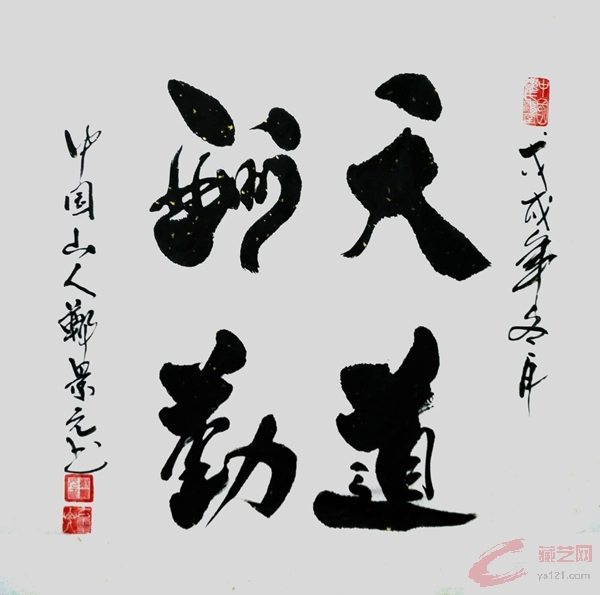 戊戌年冬月
天道
酬勤
中国山人郑景元书
藏艺网
ys121.com